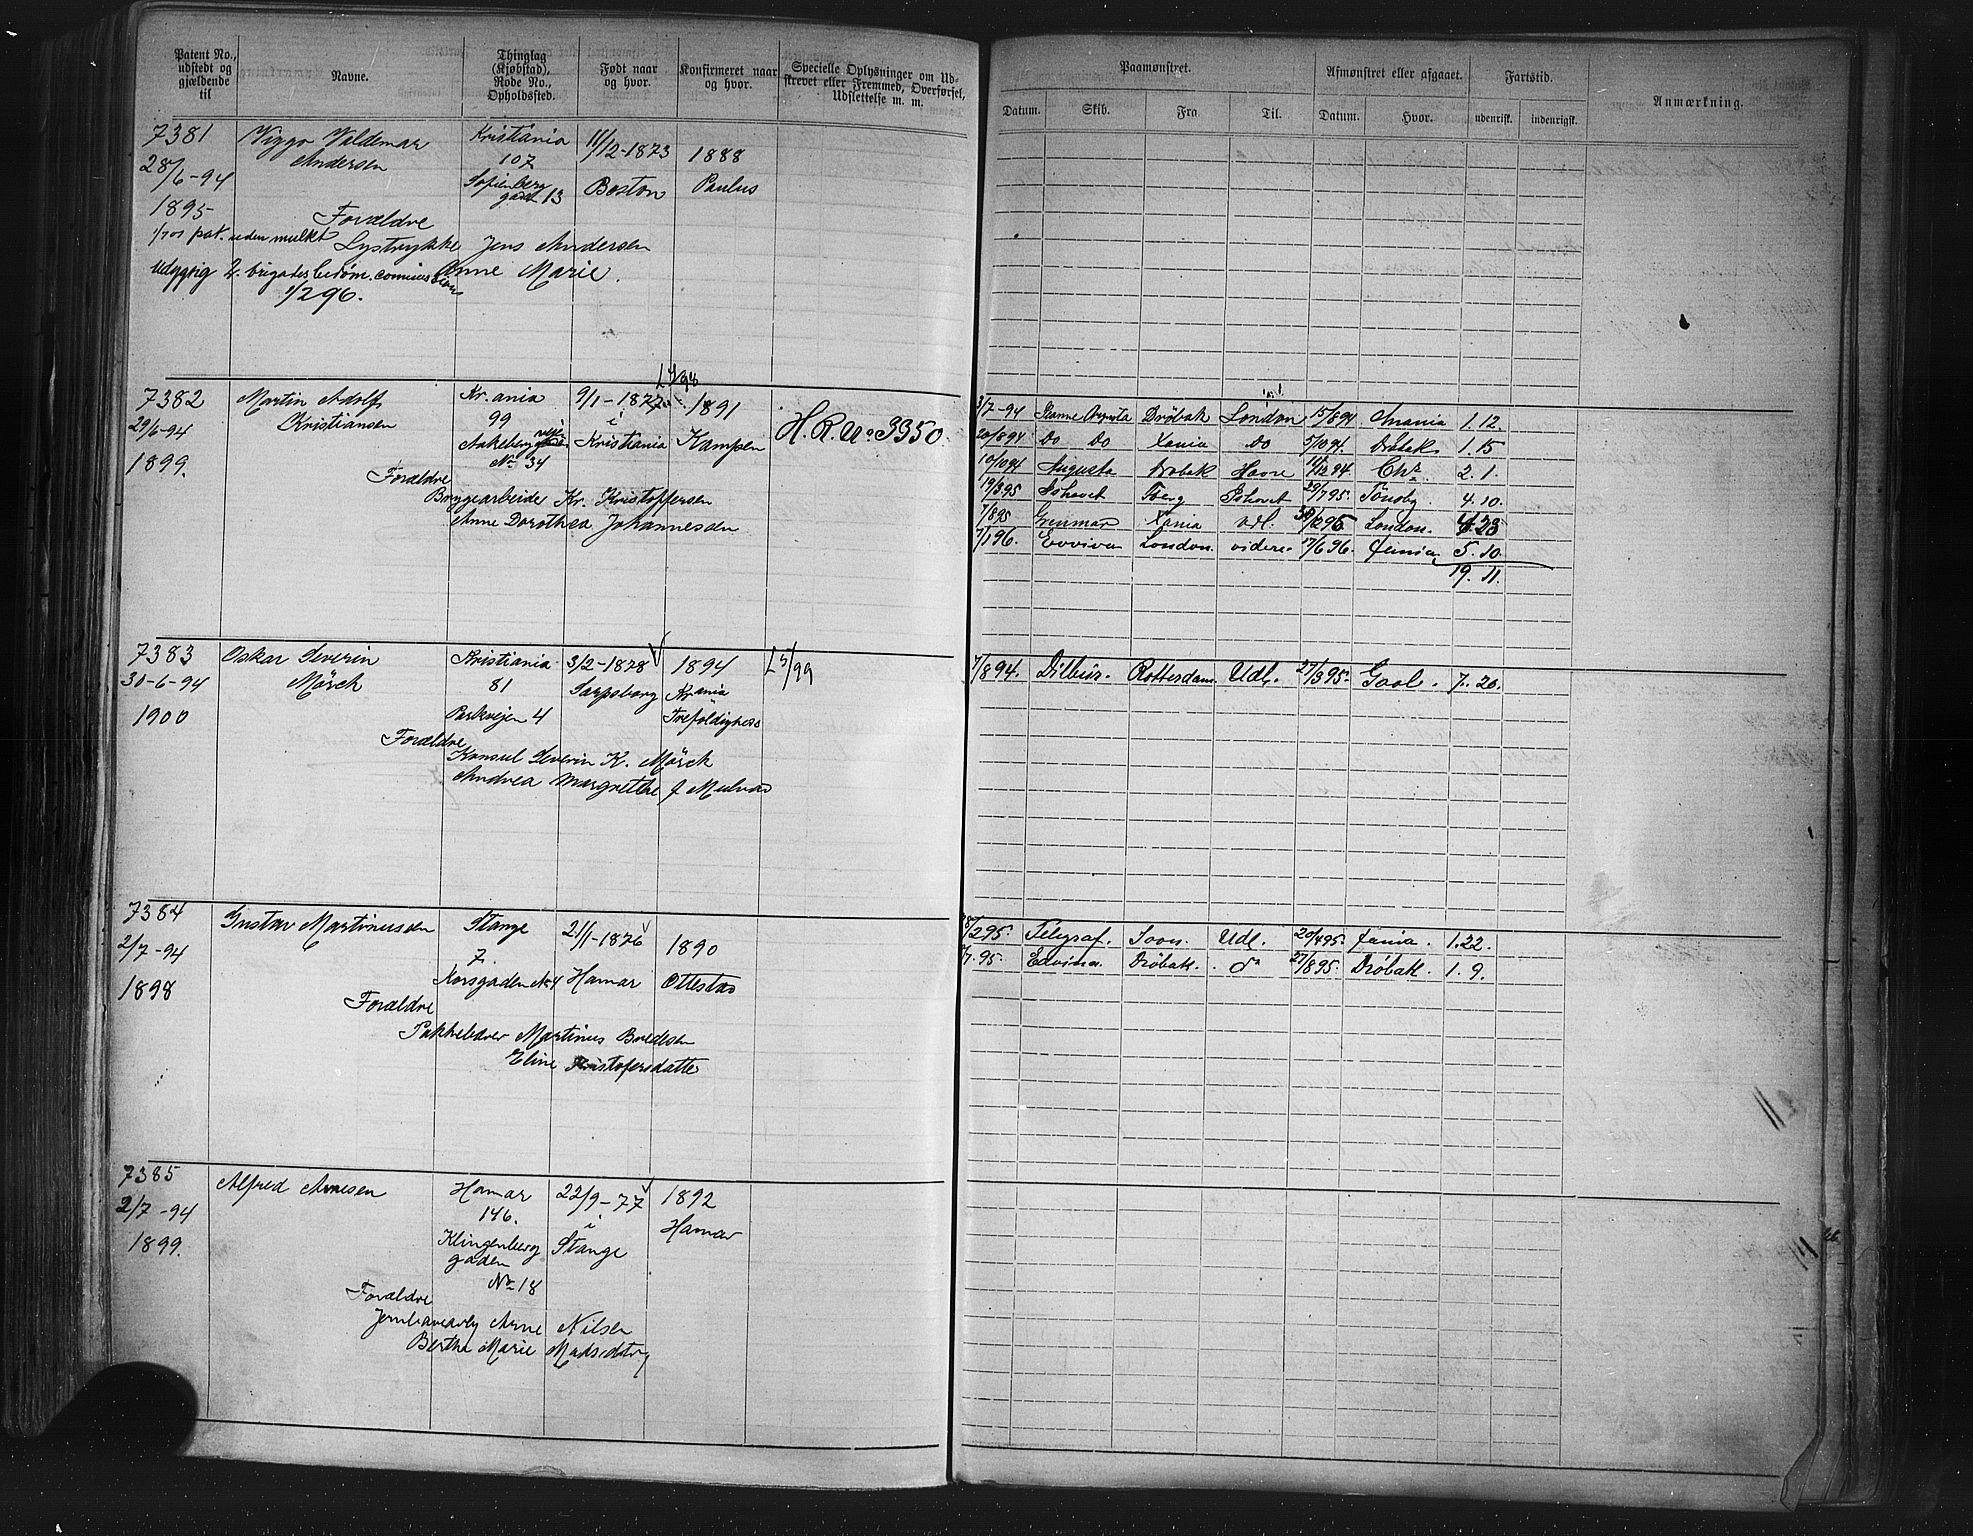 Patent No., udstedt og gjældende til
Navne.
Thinglag (Kjøbstad), Rode No., Opholdssted.
Født naar og hvor.
Konfirmeret naar og hvor.
Specielle Oplysninger om Udskrevet eller Fremmed, Overførsel, Udslettelse m. m.
Paamønstret.
Afmønstret eller afgaaet.
Fartstid.
Anmærkning.
Datum. Skib. Fra Til. Datum. Hvor. udenrisk. indenrigsk.
7381 Viggo Valdemar Kristiania 11/12-1873 1888
28/6-94 Andersen 107
Sofienberg gaden 13 Boston Paulus
1895
Forældre
1/7 01 pat. uden mulkt Lystrykke Jens Andersen
Udygtig 2. brigades bedøm. commission Anne Marie.
1/2 96.
7382 Martin Adolf Kr.ania 9/1-1877 1891 H.R. No 3350.
29/6-94 Kristiansen 99 i
Aakeberg veje Kristiania Kampen
1899. No 34
Forældre
Kr. Kristoffersen
Anne Dorothea Johannesen
3/7-94 Drøbak London 15/8 94 1.12.
20/8 94 Do Do Xania Do 5/10 94. Drøbak 1.15
10/10 94 Augusta Drøbak Havre 94 Cha 2.1.
19/3 95 Ishavet Tberg Ishavet 29/7 95. Tønsbg. 4.10.
7/8 95 Grenmar Xania Udl. 30/12 95 London. 4.23
7/1 96. Evviva London. videre 17/6 96. 5.10.
19.11.
7383 Oskar Severin Kristiania 3/2-1878 1894 L 5/99
30-6-94 Mörch 81 Sarpsborg Kr.ania
1900 Parkvejen 4 Trefoldigheds
Forældre
Konsul Severin K. Mörch
Andrea Margrethe f
7/8 94. Dilbur. Rotterdam. Udl. 27/3 95. Goole. 7.20.
7384 Gustav Martinussen Stange 21/1-1876 1890
2/7-94 7.
1898 Korsgaden No 4 Hamar Ottestad
Forældre
Pakkebærer Martinus Bredesen
Eline Kristofersdatter
28/2 95. Telegraf. Soon. Udl. 20/4 95. 1.22.
7/7 95 Edvina. Drøbak. do 27/8 95. Drøbak. 1.9.
7385 Alfred Arnesen Hamar 22/9-77 1892
2/7-94 146. i Hamar
1899. Klingenberg gaden Stange
No 18
Forældre
Jernbanearb Arne Nilsen
Bertha Marie Madsdatter